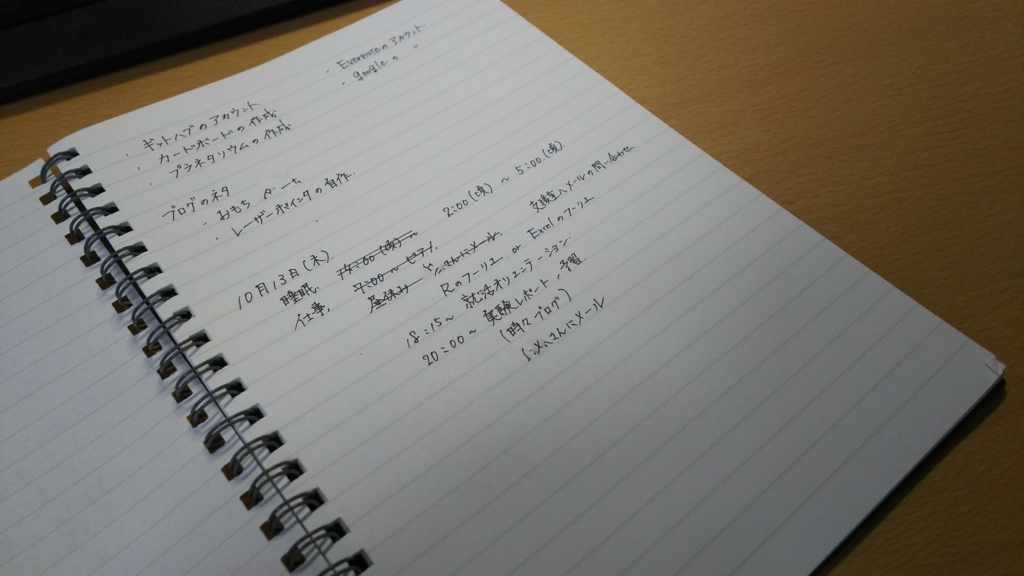 ・Evernoteのアカウント
・google の 〃
・ギットハブのアカウント
・カードボードの作成
・プラネタリウムの作成
ブログのネタ
・おもち
・レーザーポインタの自作.
・
10月13日(木)
睡眠. 2:00(夜) ～ 5:00(夜)
仕事. 昼休み にメール. 支援室へメールの問い合わせ
Rのフーリエ or Excelのフーリエ
18:15～ 就活オリエンテーション.
20:00～ 実験レポート, 予習.
(時々ブログ)
さんにメール